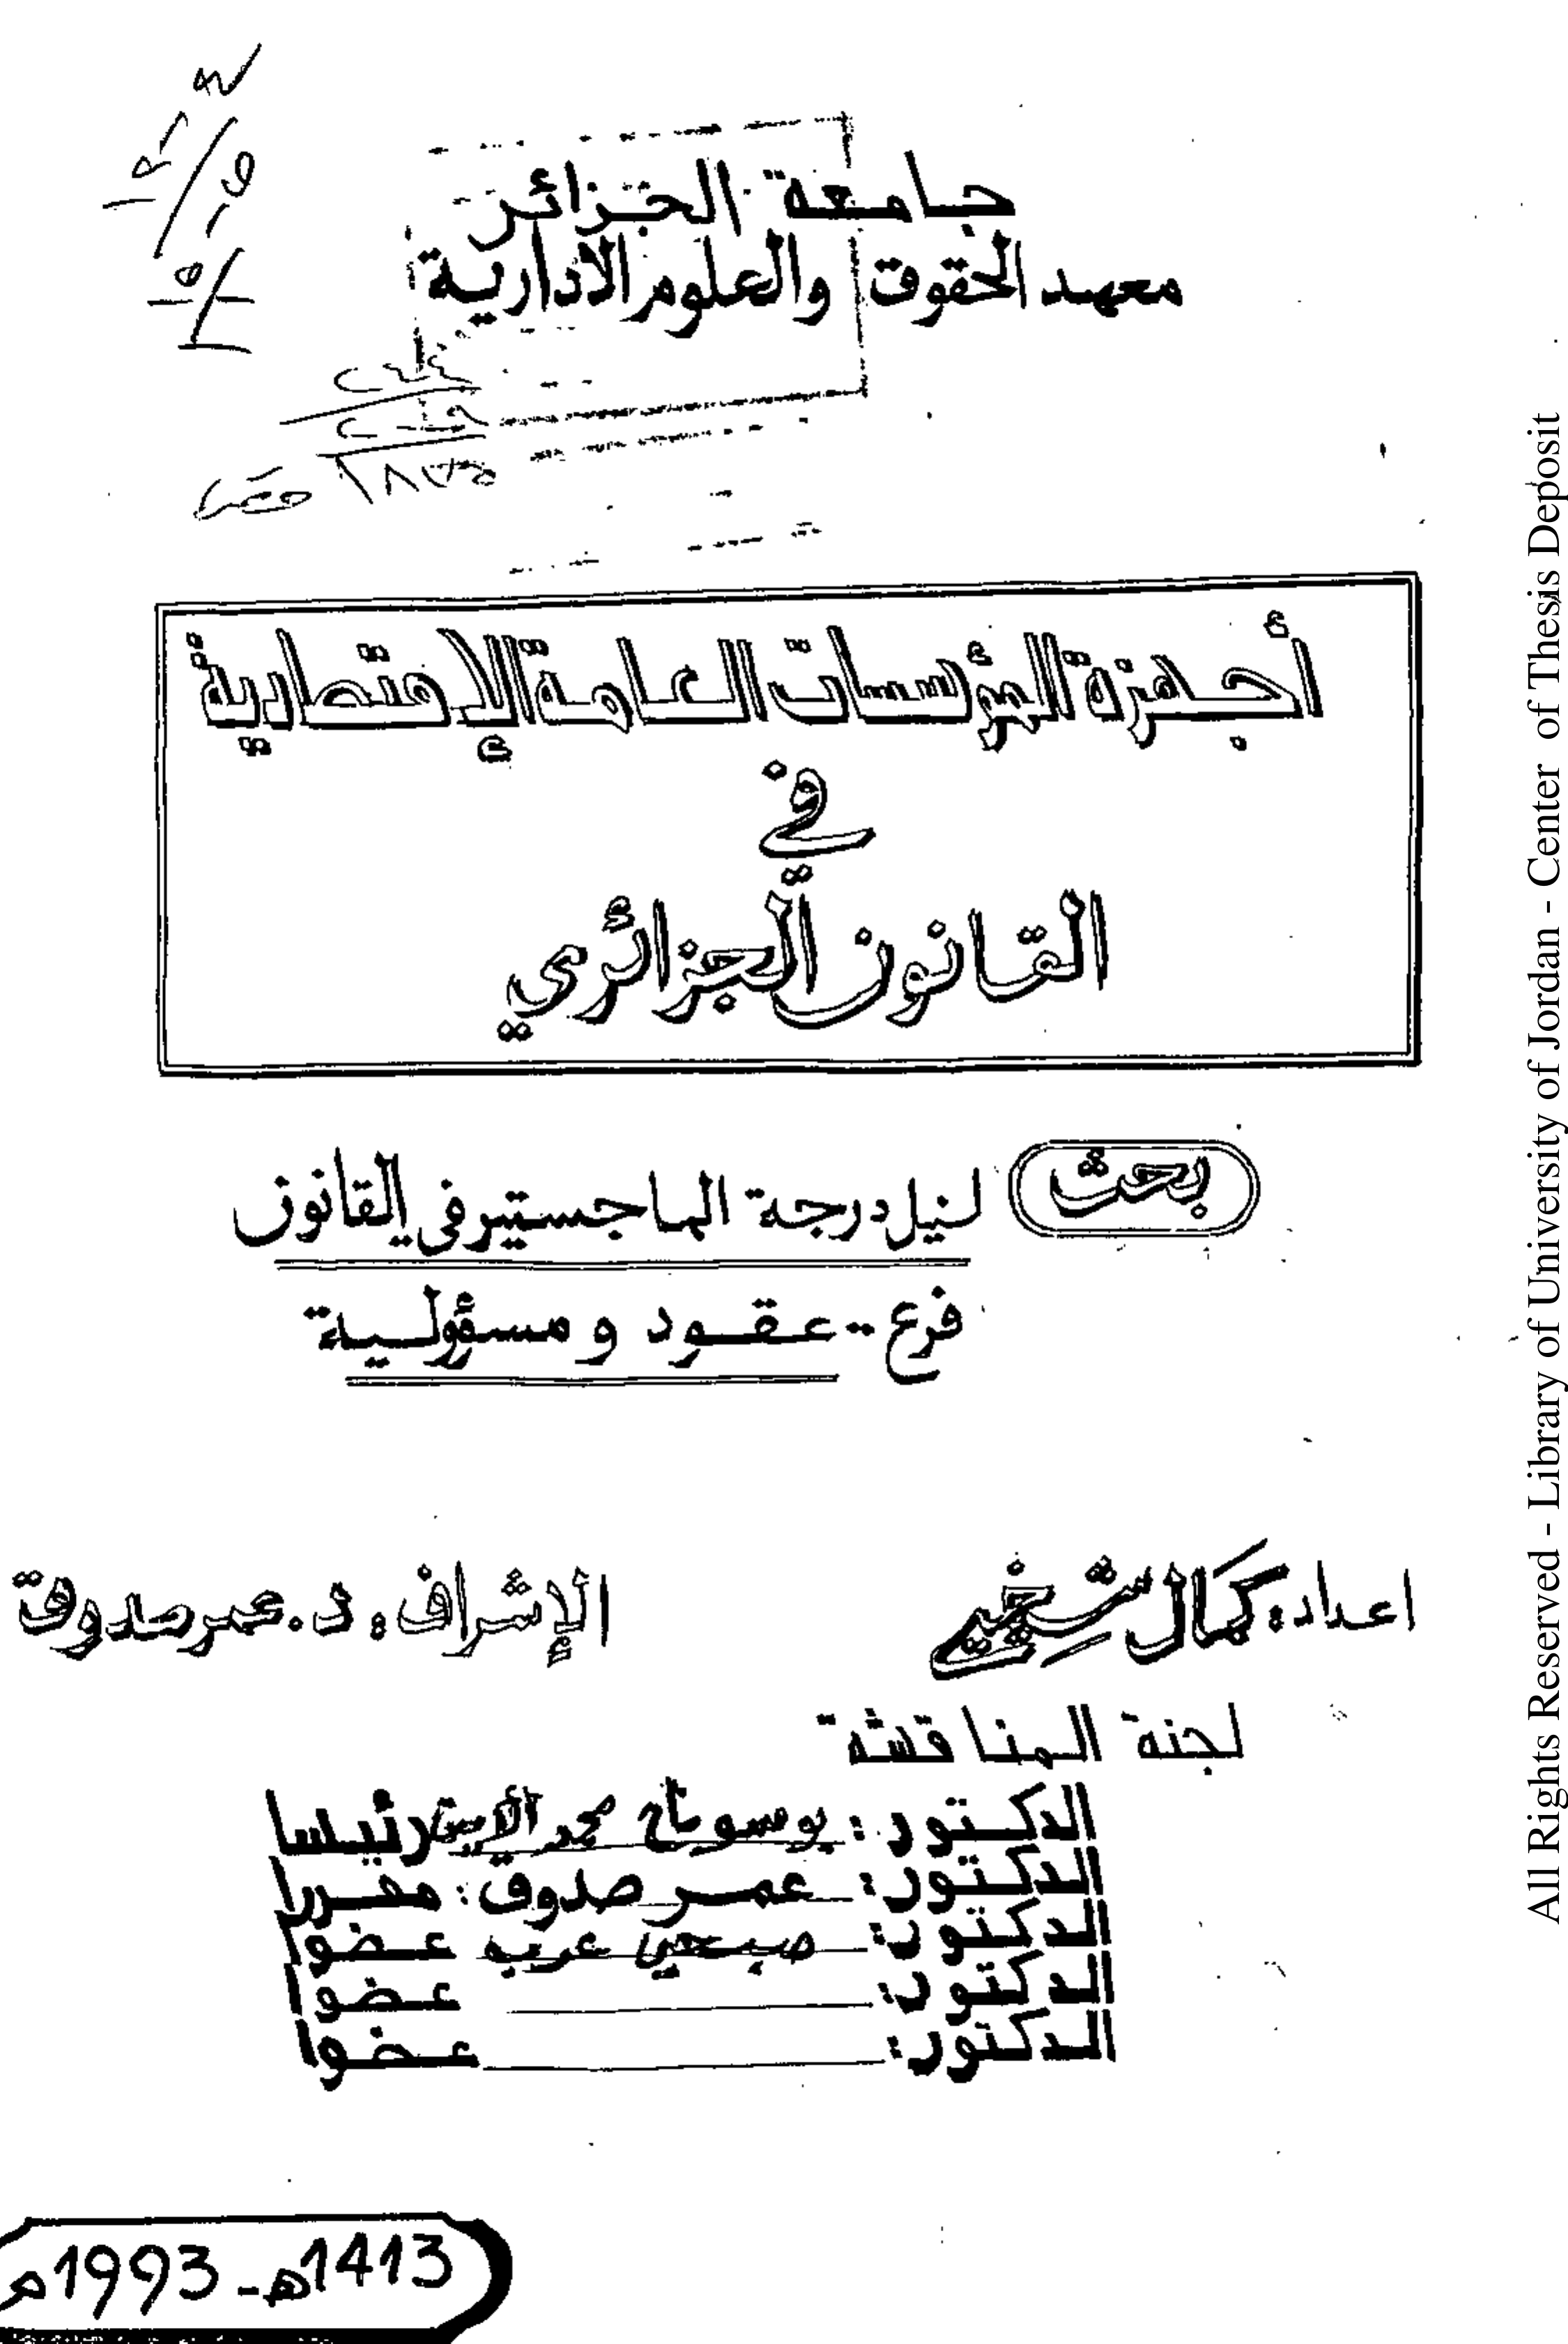 جامعة الجزائر
معهد الحقوق والعلوم الادارية
أجهزة المؤسسات العامة الإقتصادية
في
القانون الجزائري
بحث لنيل درجة الماجستير في القانون
فرع -- عقود و مسؤولية
اعداد: كمال شيخي
الإشراف: د. عمر صدوق
لجنة المناقشة
الدكتور: بوسوماح محمد الأمين رئيسا
الدكتور: عمر صدوق: مقررا
الدكتور: صبحي عرب عضوا
الدكتور: عضوا
الدكتور: عضوا
1413هـ - 1993م
All Rights Reserved - Library of University of Jordan - Center of Thesis Deposit